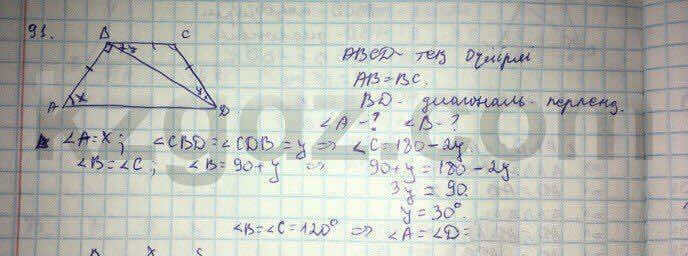 91.
B C
A x D
y y
ABCD - тең бүйірлі
AB = BC.
BD - диагональ - перпенд.
∠A - ? ∠B - ?
∠A = x; ∠CBD = ∠CDB = y ⇒ ∠C = 180 - 2y.
∠B = ∠C; ∠B = 90 + y ⇒ 90 + y = 180 - 2y.
3y = 90.
y = 30°.
∠B = ∠C = 120° ⇒ ∠A = ∠D =
kzgdz.com